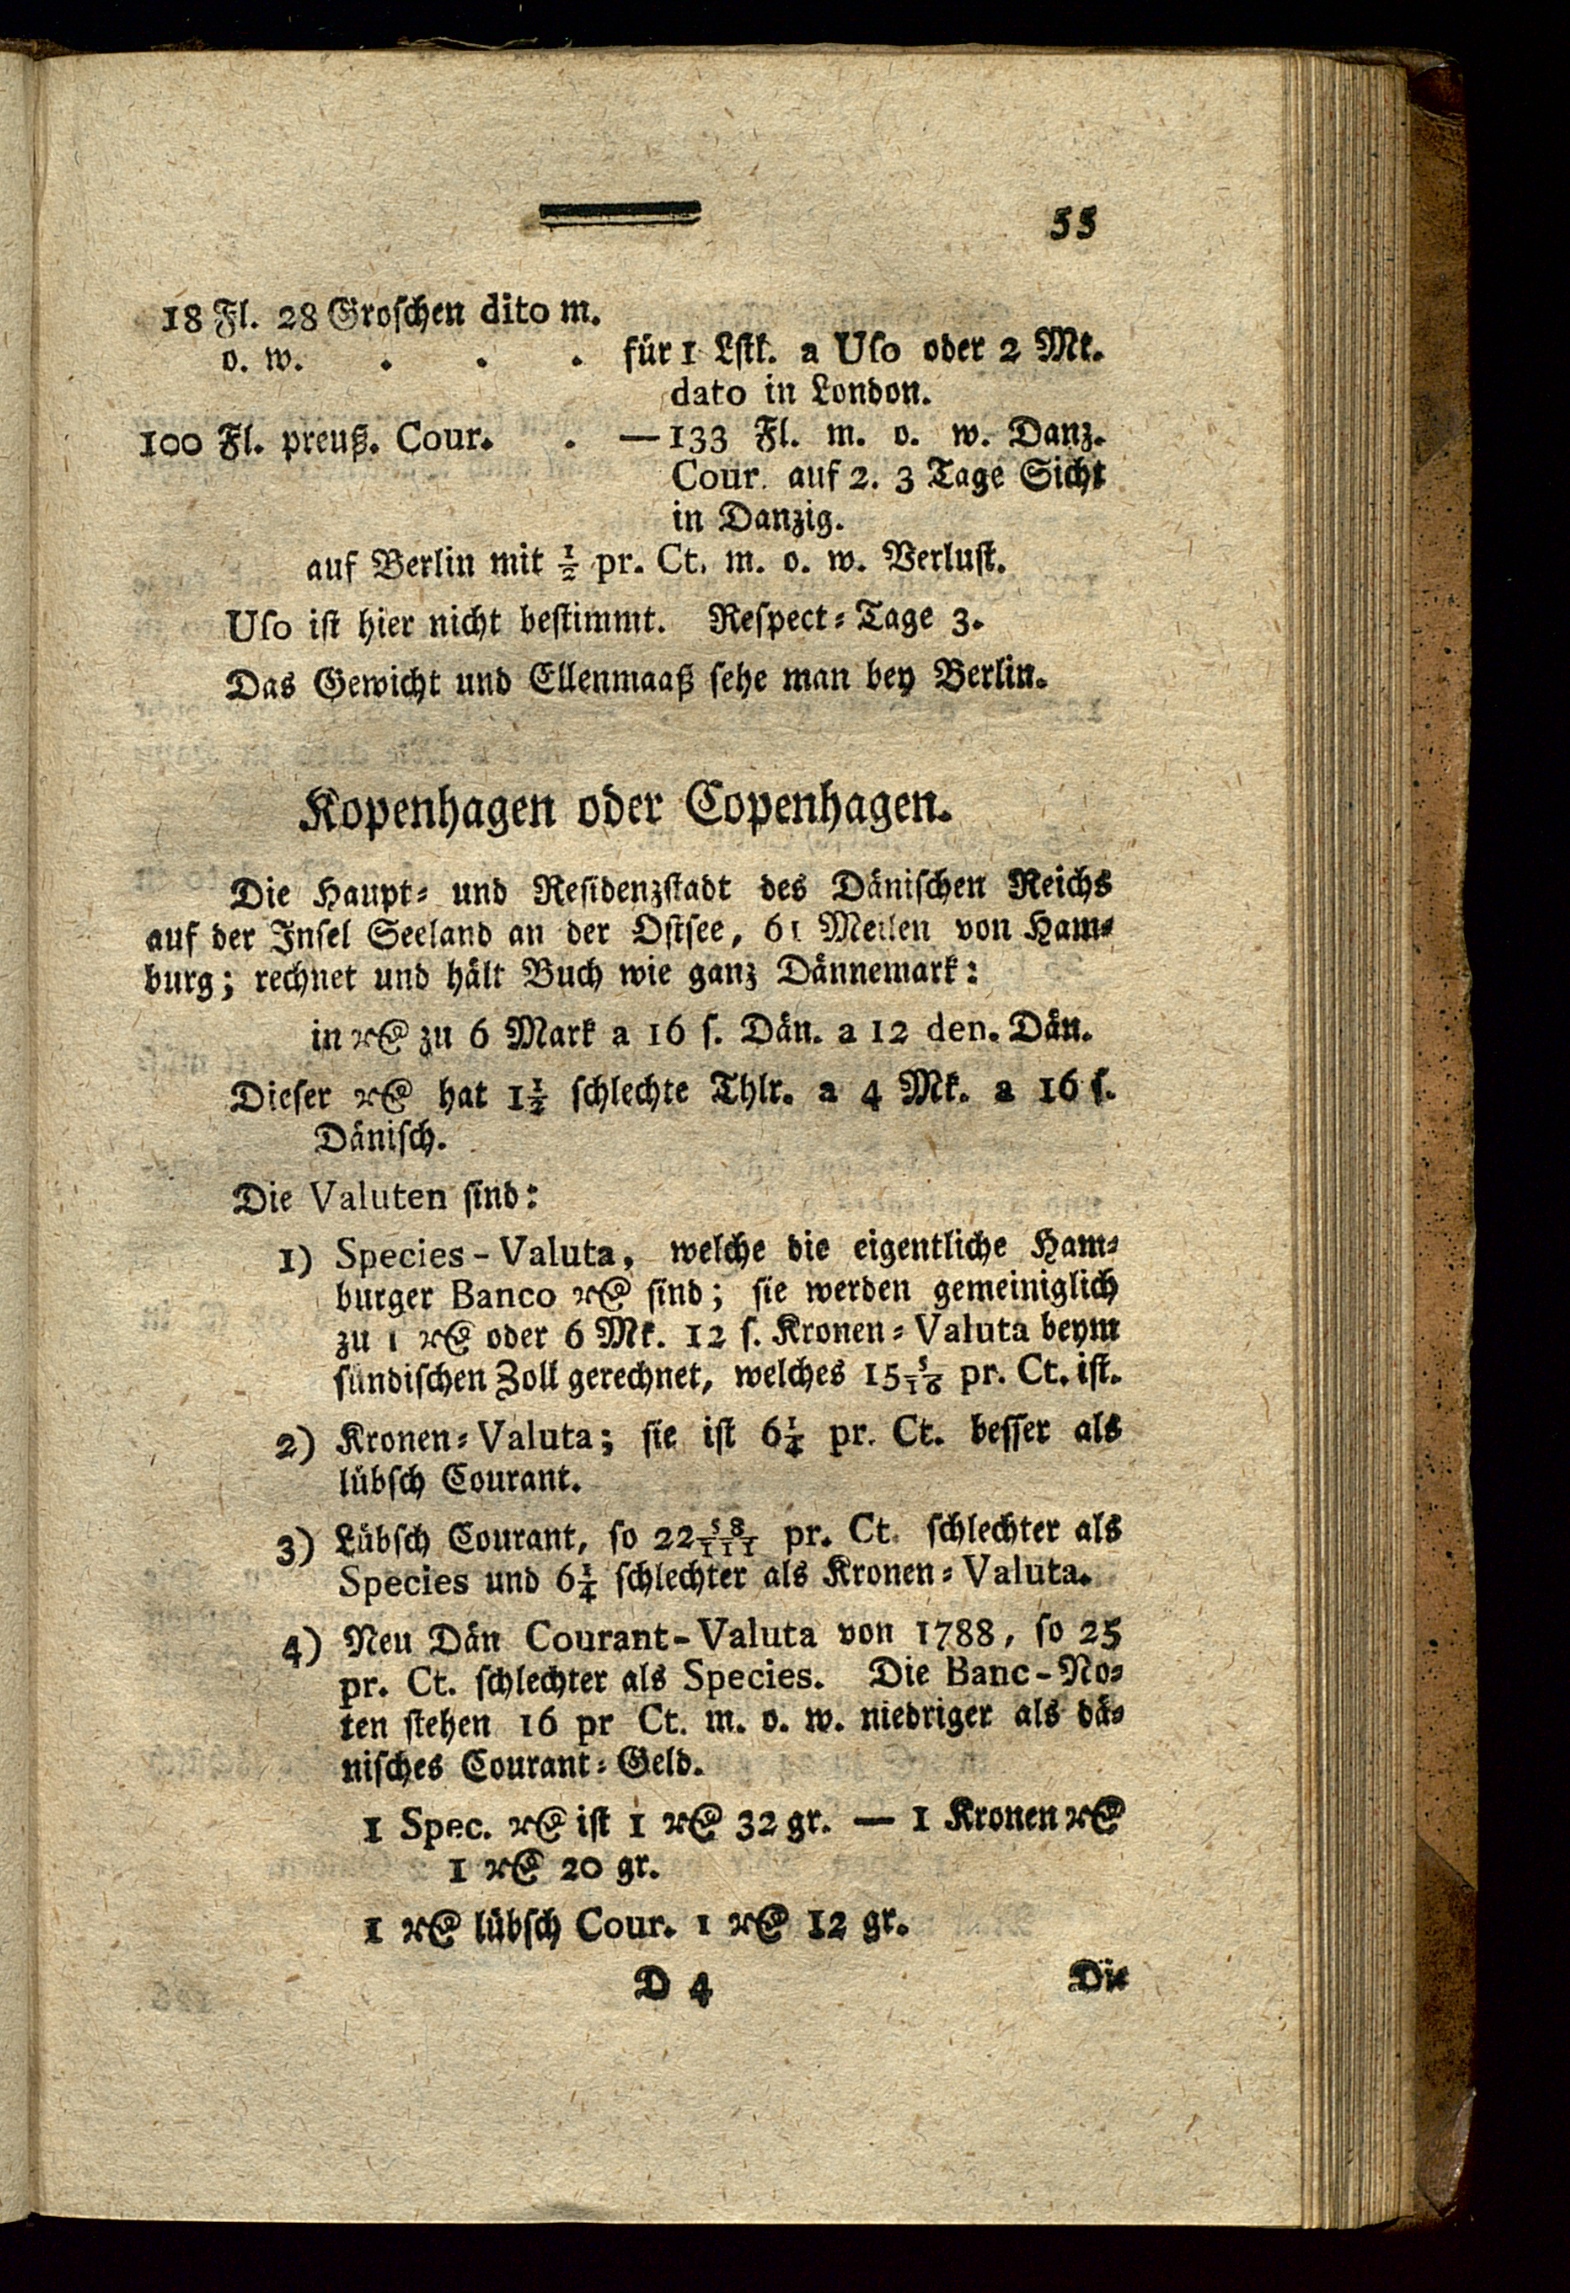 55
18 Fl. 28 Groschen dito m.
o. w. . . . für 1 Lstl. a Uso oder 2 Mt.
dato in London.
100 Fl. preuß. Cour. . — 133 Fl. m. o. w. Danz.
Cour. auf 2. 3 Tage Sicht
in Danzig.
auf Berlin mit ½ pr. Ct. m. o. w. Verlust.
Uso ist hier nicht bestimmt. Respect-Tage 3.
Das Gewicht und Ellenmaaß sehe man bey Berlin.
Kopenhagen oder Copenhagen.
Die Haupt- und Residenzstadt des Dänischen Reichs
auf der Insel Seeland an der Ostsee, 61 Meilen von Ham-
burg; rechnet und hält Buch wie ganz Dännemark:
in rℓ zu 6 Mark a 16 s. Dän. a 12 den. Dän.
Dieser rℓ hat 1½ schlechte Thlr. a 4 Mk. a 16 s.
Dänisch.
Die Valuten sind:
1) Species-Valuta, welche die eigentliche Ham-
burger Banco rℓ sind; sie werden gemeiniglich
zu 1 rℓ oder 6 Mk. 12 s. Kronen-Valuta beym
sündischen Zoll gerechnet, welches 15 5/16 pr. Ct. ist.
2) Kronen-Valuta; sie ist 6¼ pr. Ct. besser als
lübsch Courant.
3) Lübsch Courant, so 22 58/111 pr. Ct. schlechter als
Species und 6¼ schlechter als Kronen-Valuta.
4) Neu Dän Courant-Valuta von 1788, so 25
pr. Ct. schlechter als Species. Die Banc-No-
ten stehen 16 pr Ct. m. o. w. niedriger als dä-
nisches Courant-Geld.
1 Spec. rℓ ist 1 rℓ 32 gr. — 1 Kronen rℓ
1 rℓ 20 gr.
1 rℓ lübsch Cour. 1 rℓ 12 gr.
D 4 Die